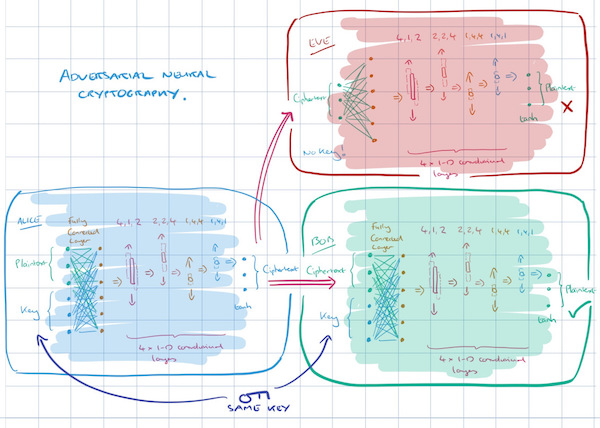 ADVERSARIAL NEURAL
CRYPTOGRAPHY.
EVE
4,1,2 2,2,4 1,4,4 1,4,1
Ciphertext
Plaintext
No Key!
tanh
X
4 x 1-D convolutional
layers
ALICE
Fully
Connected
Layer
4,1,2 2,2,4 1,4,4 1,4,1
Plaintext
Key
Ciphertext
tanh
4 x 1-D convolutional
layers
BOB
Fully
Connected
Layer
4,1,2 2,2,4 1,4,4 1,4,1
Ciphertext
Key
Plaintext
tanh
4 x 1-D convolutional
layers
SAME KEY